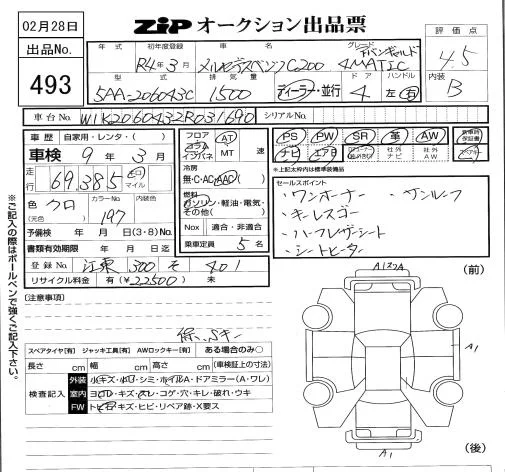 02月28日
出品No.
493
ZiP オークション出品票
評価点
4.5
内装
B
年式
初年度登録
R4年3月
車名
メルセデスベンツC200
グレード
アバンギャルド
4MATIC
型式
5AA-206043C
排気量
1500
ディーラー・並行
ドア
4
ハンドル
左・右
車台No.
W1K2060432R031690
シリアルNo.
車歴
自家用・レンタ・( )
車検 9年3月
走行
69,385
マイル
色
(元色)
クロ
カラーNo.
197
内装色
予備検 年 月 日(3・8)No.
書類有効期限 年 月 日迄
登録No. 江東 300 そ 401
リサイクル料金 有(¥22500) 未
フロア
コラム
インパネ
AT
MT
速
冷房
無・C・AC・AAC
燃料
ガソリン・軽油・電気・
その他( )
Nox
適合・非適合
乗車定員 5名
PS
PW
SR
革
AW
ナビ
エアB
社外
ナビ
社外
AW
新車時
保証書
スペアキー
*上記太枠内は標準装備品
セールスポイント
・ワンオーナー ・サンルーフ
・キーレスゴー
・ハーフレザーシート
・シートヒーター
※ご記入の際はボールペンで強くご記入下さい。
(注意事項)
保、Sキー
スペアタイヤ[有] ジャッキ工具[有] AWロックキー[有] ある場合のみ○
長さ cm 幅 cm 高さ cm (車検証上の寸法)
検査記入
外装
小キズ・小凹・シミ・ホイルA・ドアミラー(A・ワレ)
室内
ヨゴレ・キズ・スレ・コゲ・穴・キレ・破れ・ウキ
FW
トビ石・キズ・ヒビ・リペア跡・X要ス
(前)
A1
A1
(後)